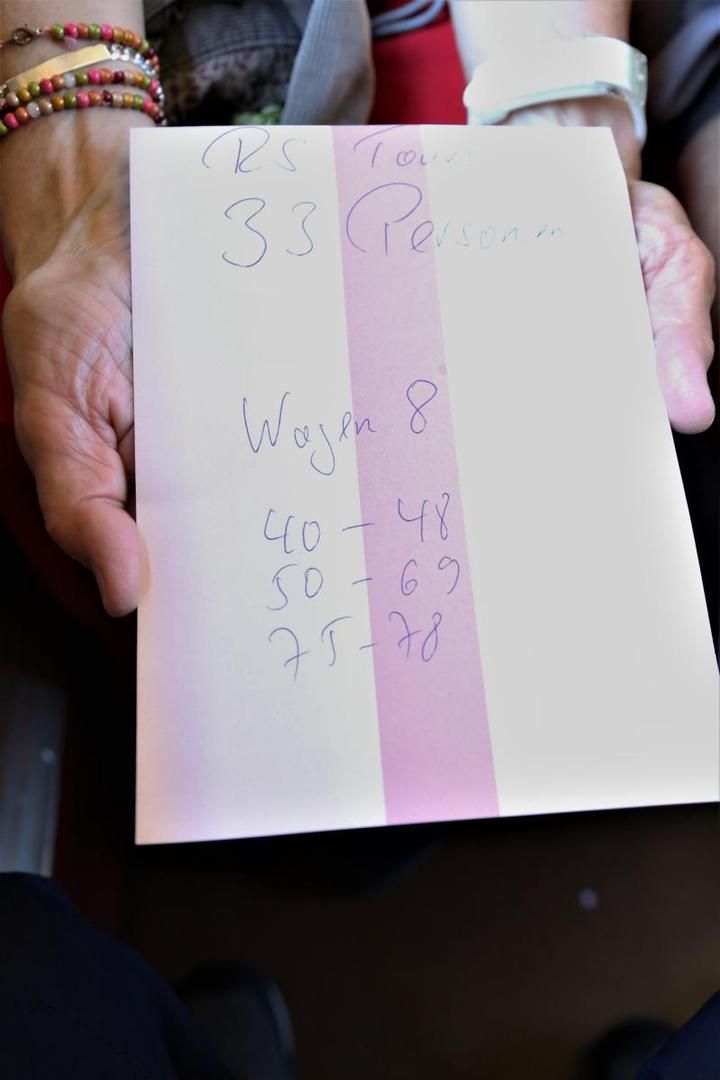 RS Tours
33 Personen
Wagen 8
40 - 48
50 - 69
75 - 78